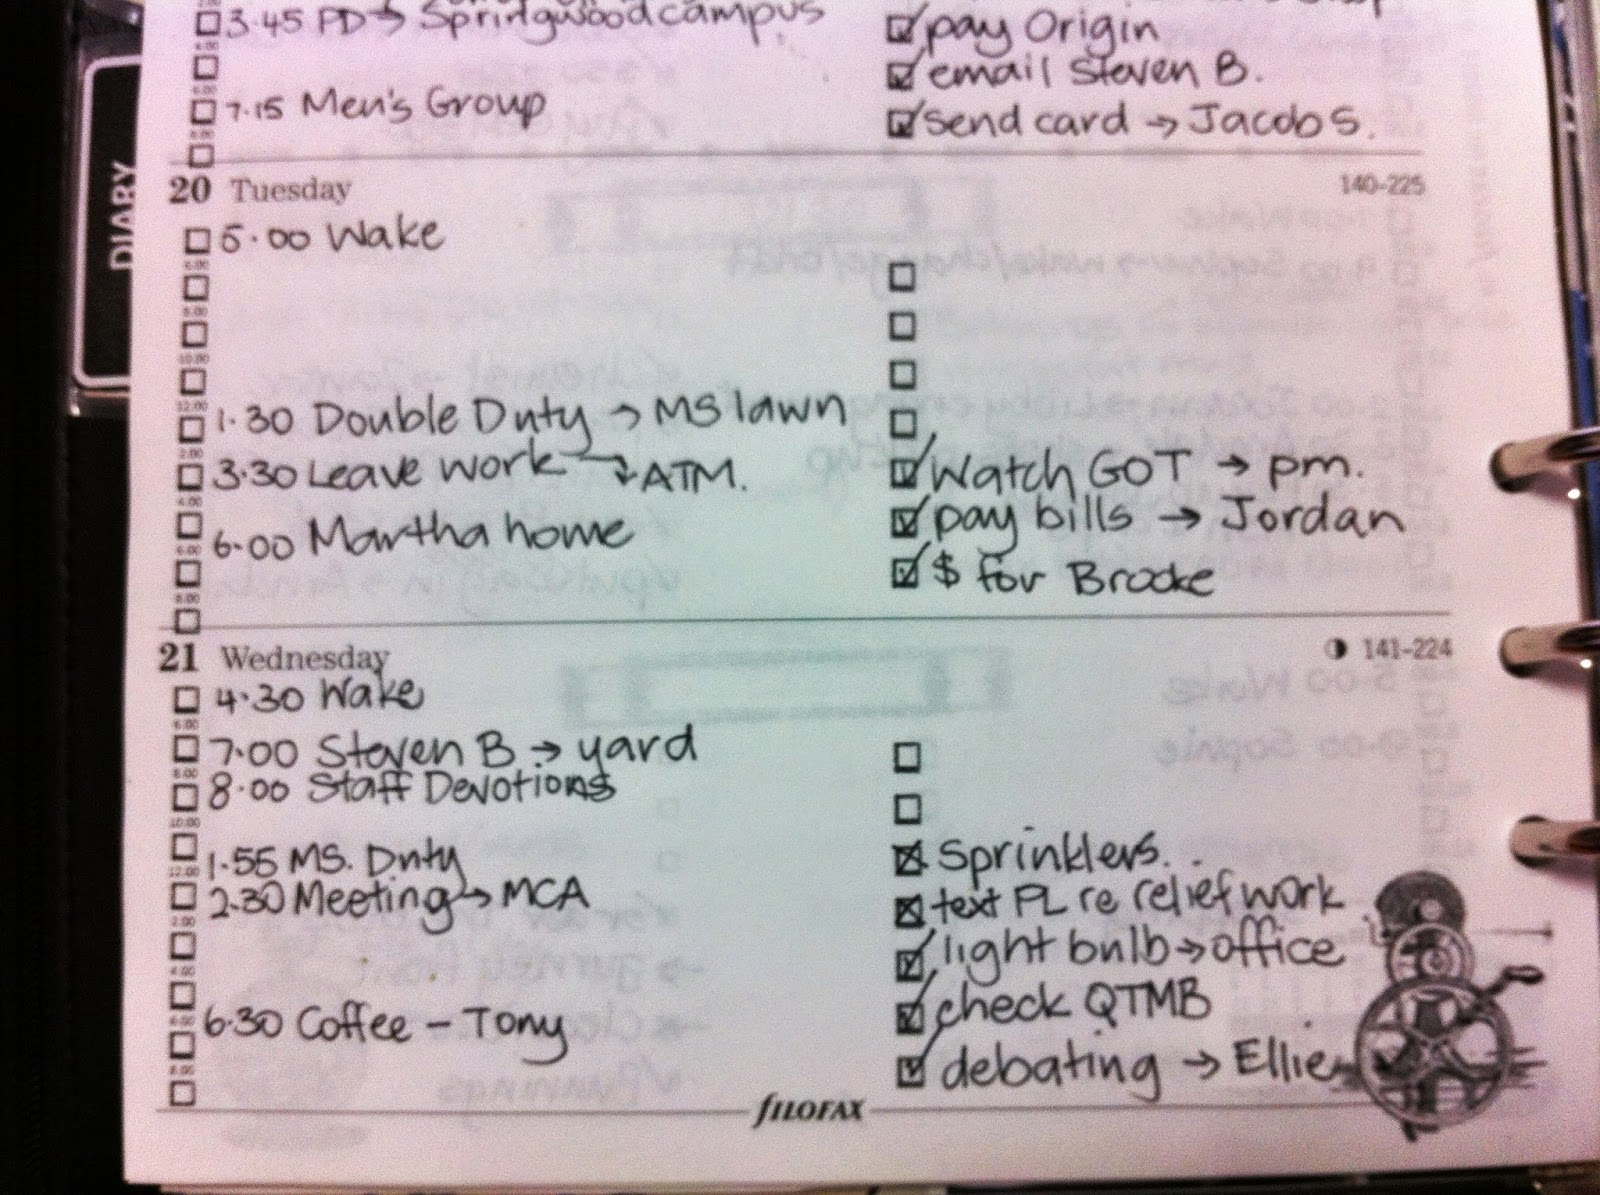 3.45 PD → Springwood campus
7.15 Men's Group
pay Origin
email Steven B.
send card → Jacobs.
DIARY
20 Tuesday 140-225
5.00 Wake
1.30 Double Duty → MS lawn
3.30 Leave work → ATM.
6.00 Martha home
Watch GOT → pm.
pay bills → Jordan
$ for Brooke
21 Wednesday 141-224
4.30 Wake
7.00 Steven B → yard
8.00 Staff Devotions
1.55 MS. Duty
2.30 Meeting → MCA
6.30 Coffee - Tony
Sprinklers.
text PL re relief work
light bulb → office
check QTMB
debating → Ellie
fILOFAX